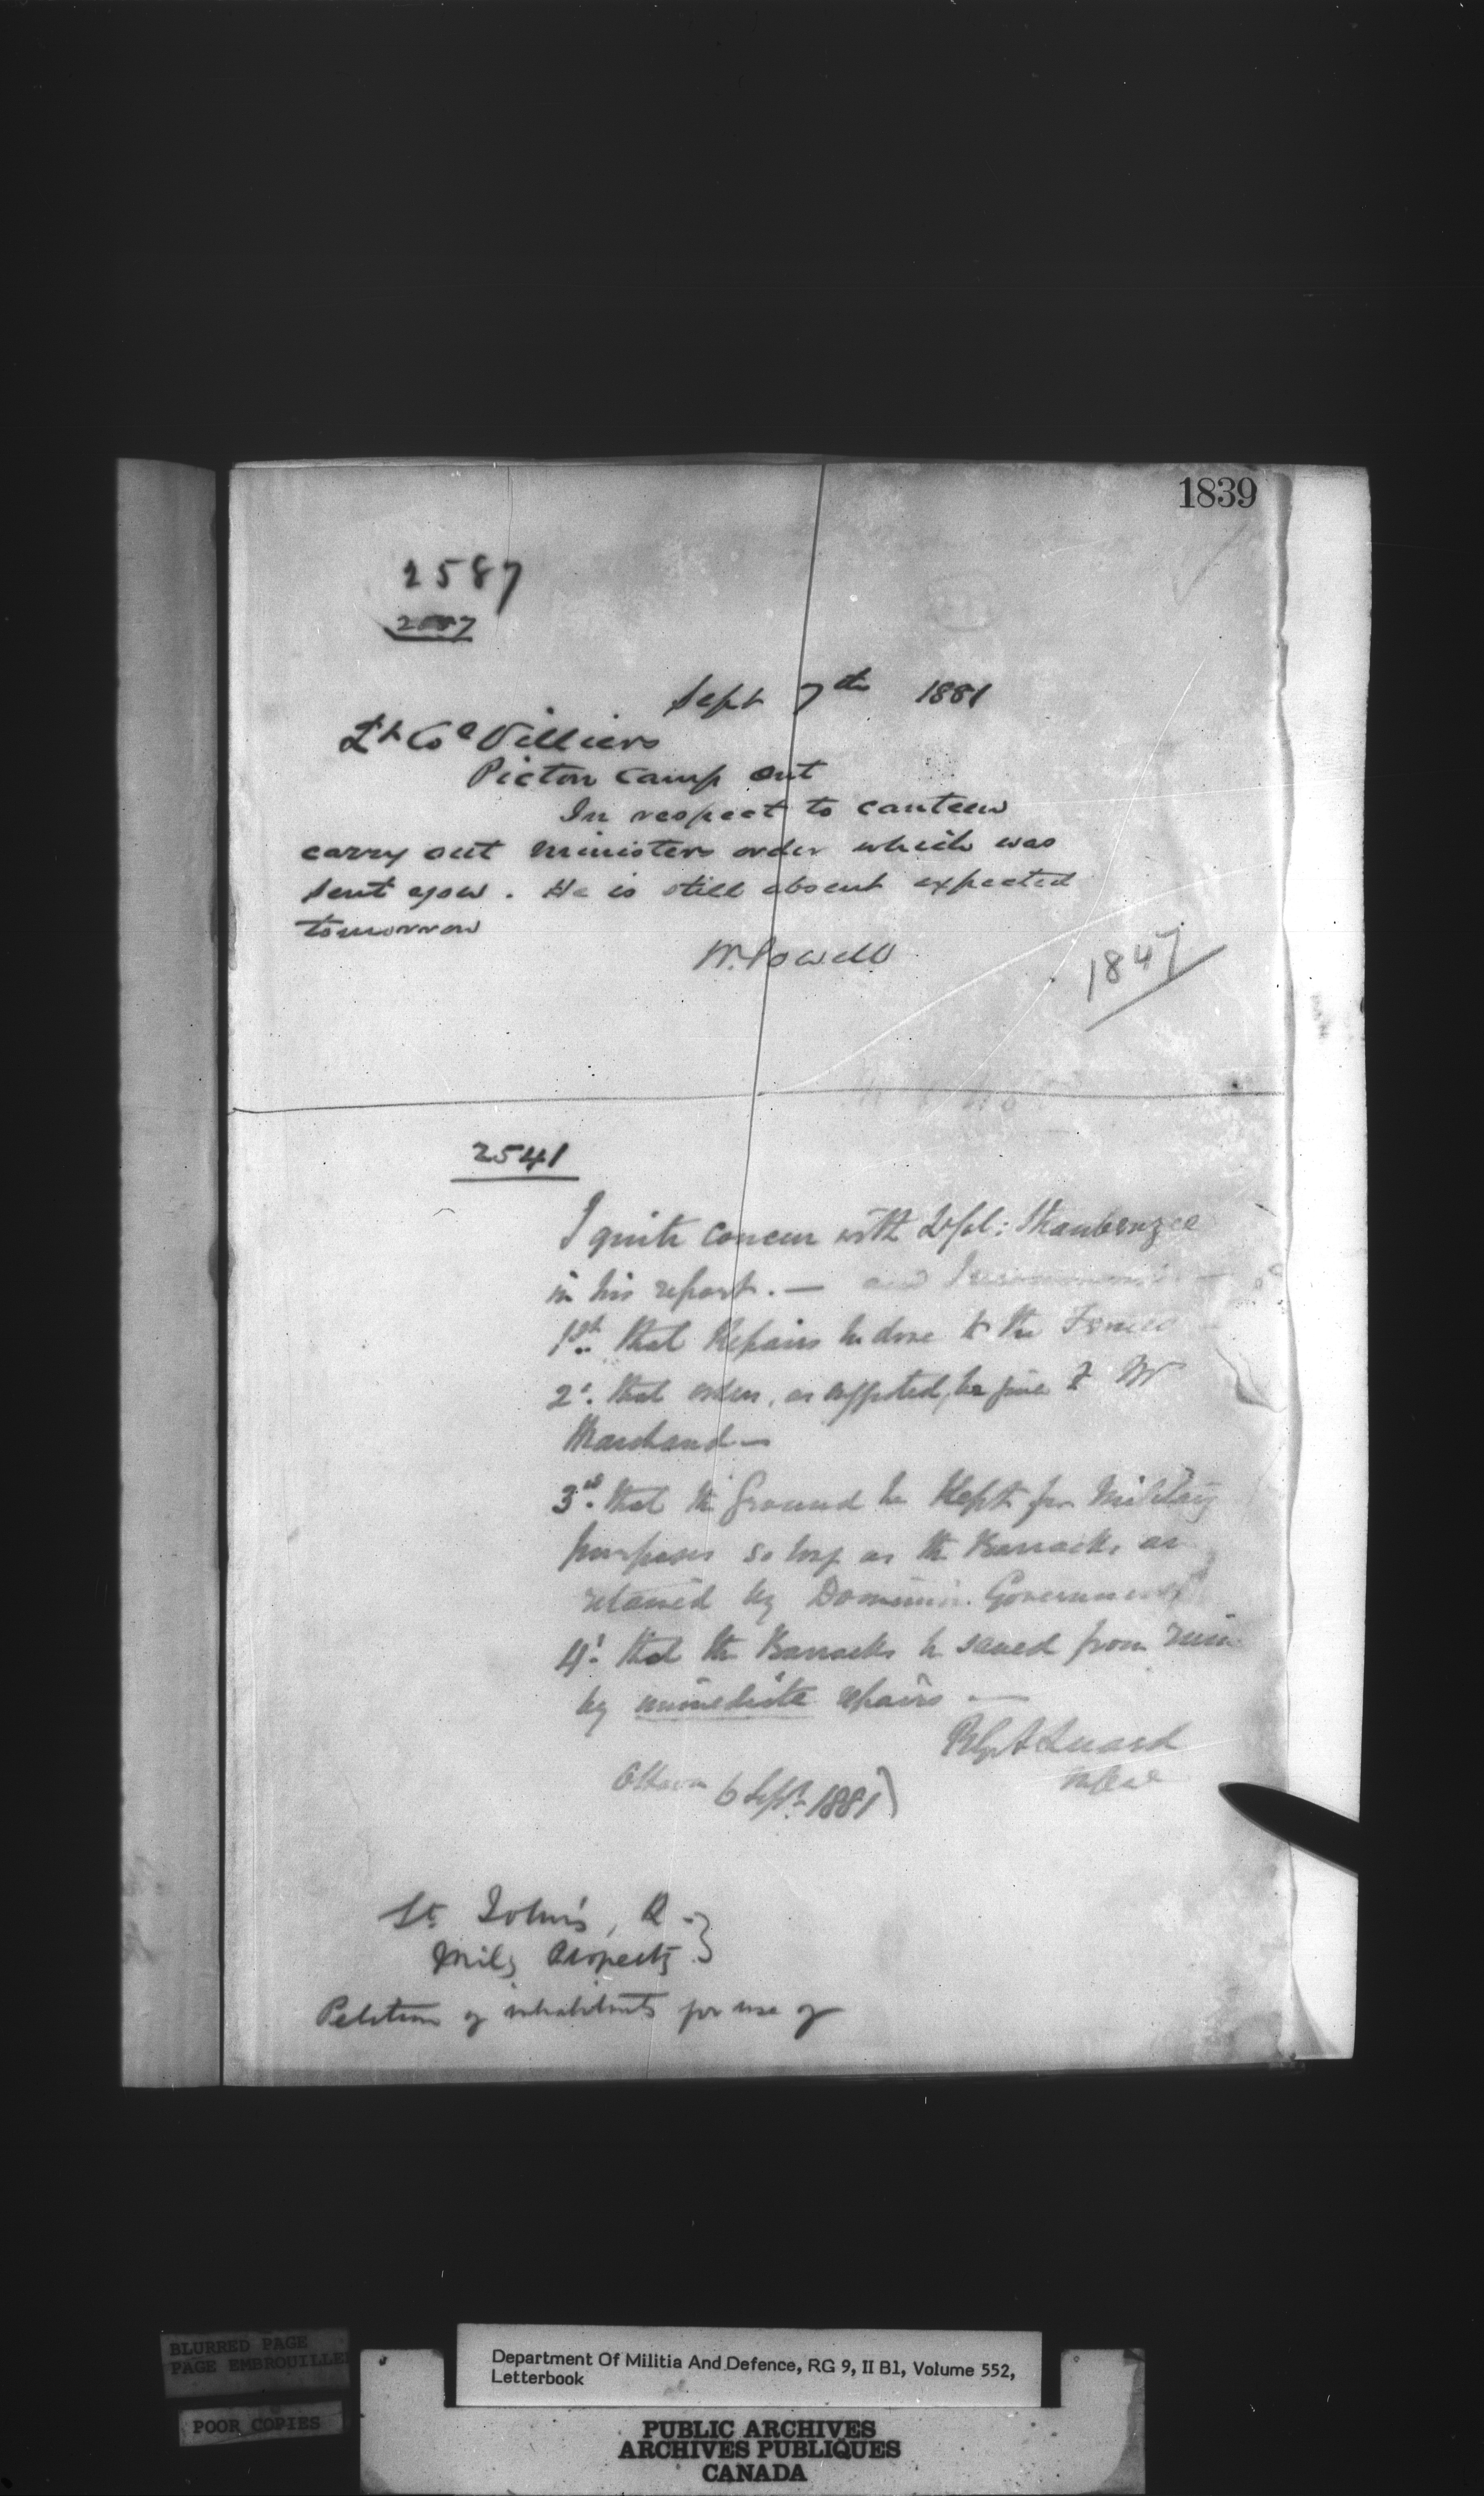 1839
2587
Sept 7th 1881
Lt Col Villiers
Picton Camp Ont
In respect to canteen
carry out ministers order which was
sent you. He is still absent expected
tomorrow
W. Powell
1847
2541
I quite concur with Lt Col: Straubenzee
in his report. — and I recommend —
1st. that Repairs be done to the Fences
2d. that orders, as suggested, be given to Mr
Marchand —
3rd. that the Ground be Kept for Military
purposes so long as the Barracks are
retained by Dominion Government
4t. that the Barracks be saved from ruin
by immediate repairs —
Luard
Ottawa 6 Sept. 1881)
St. John's, Q. }
Mily Property }
Petition of inhabitants for use of
BLURRED PAGE
PAGE EMBROUILLE
POOR COPIES
Department Of Militia And Defence, RG 9, II B1, Volume 552,
Letterbook
PUBLIC ARCHIVES
ARCHIVES PUBLIQUES
CANADA